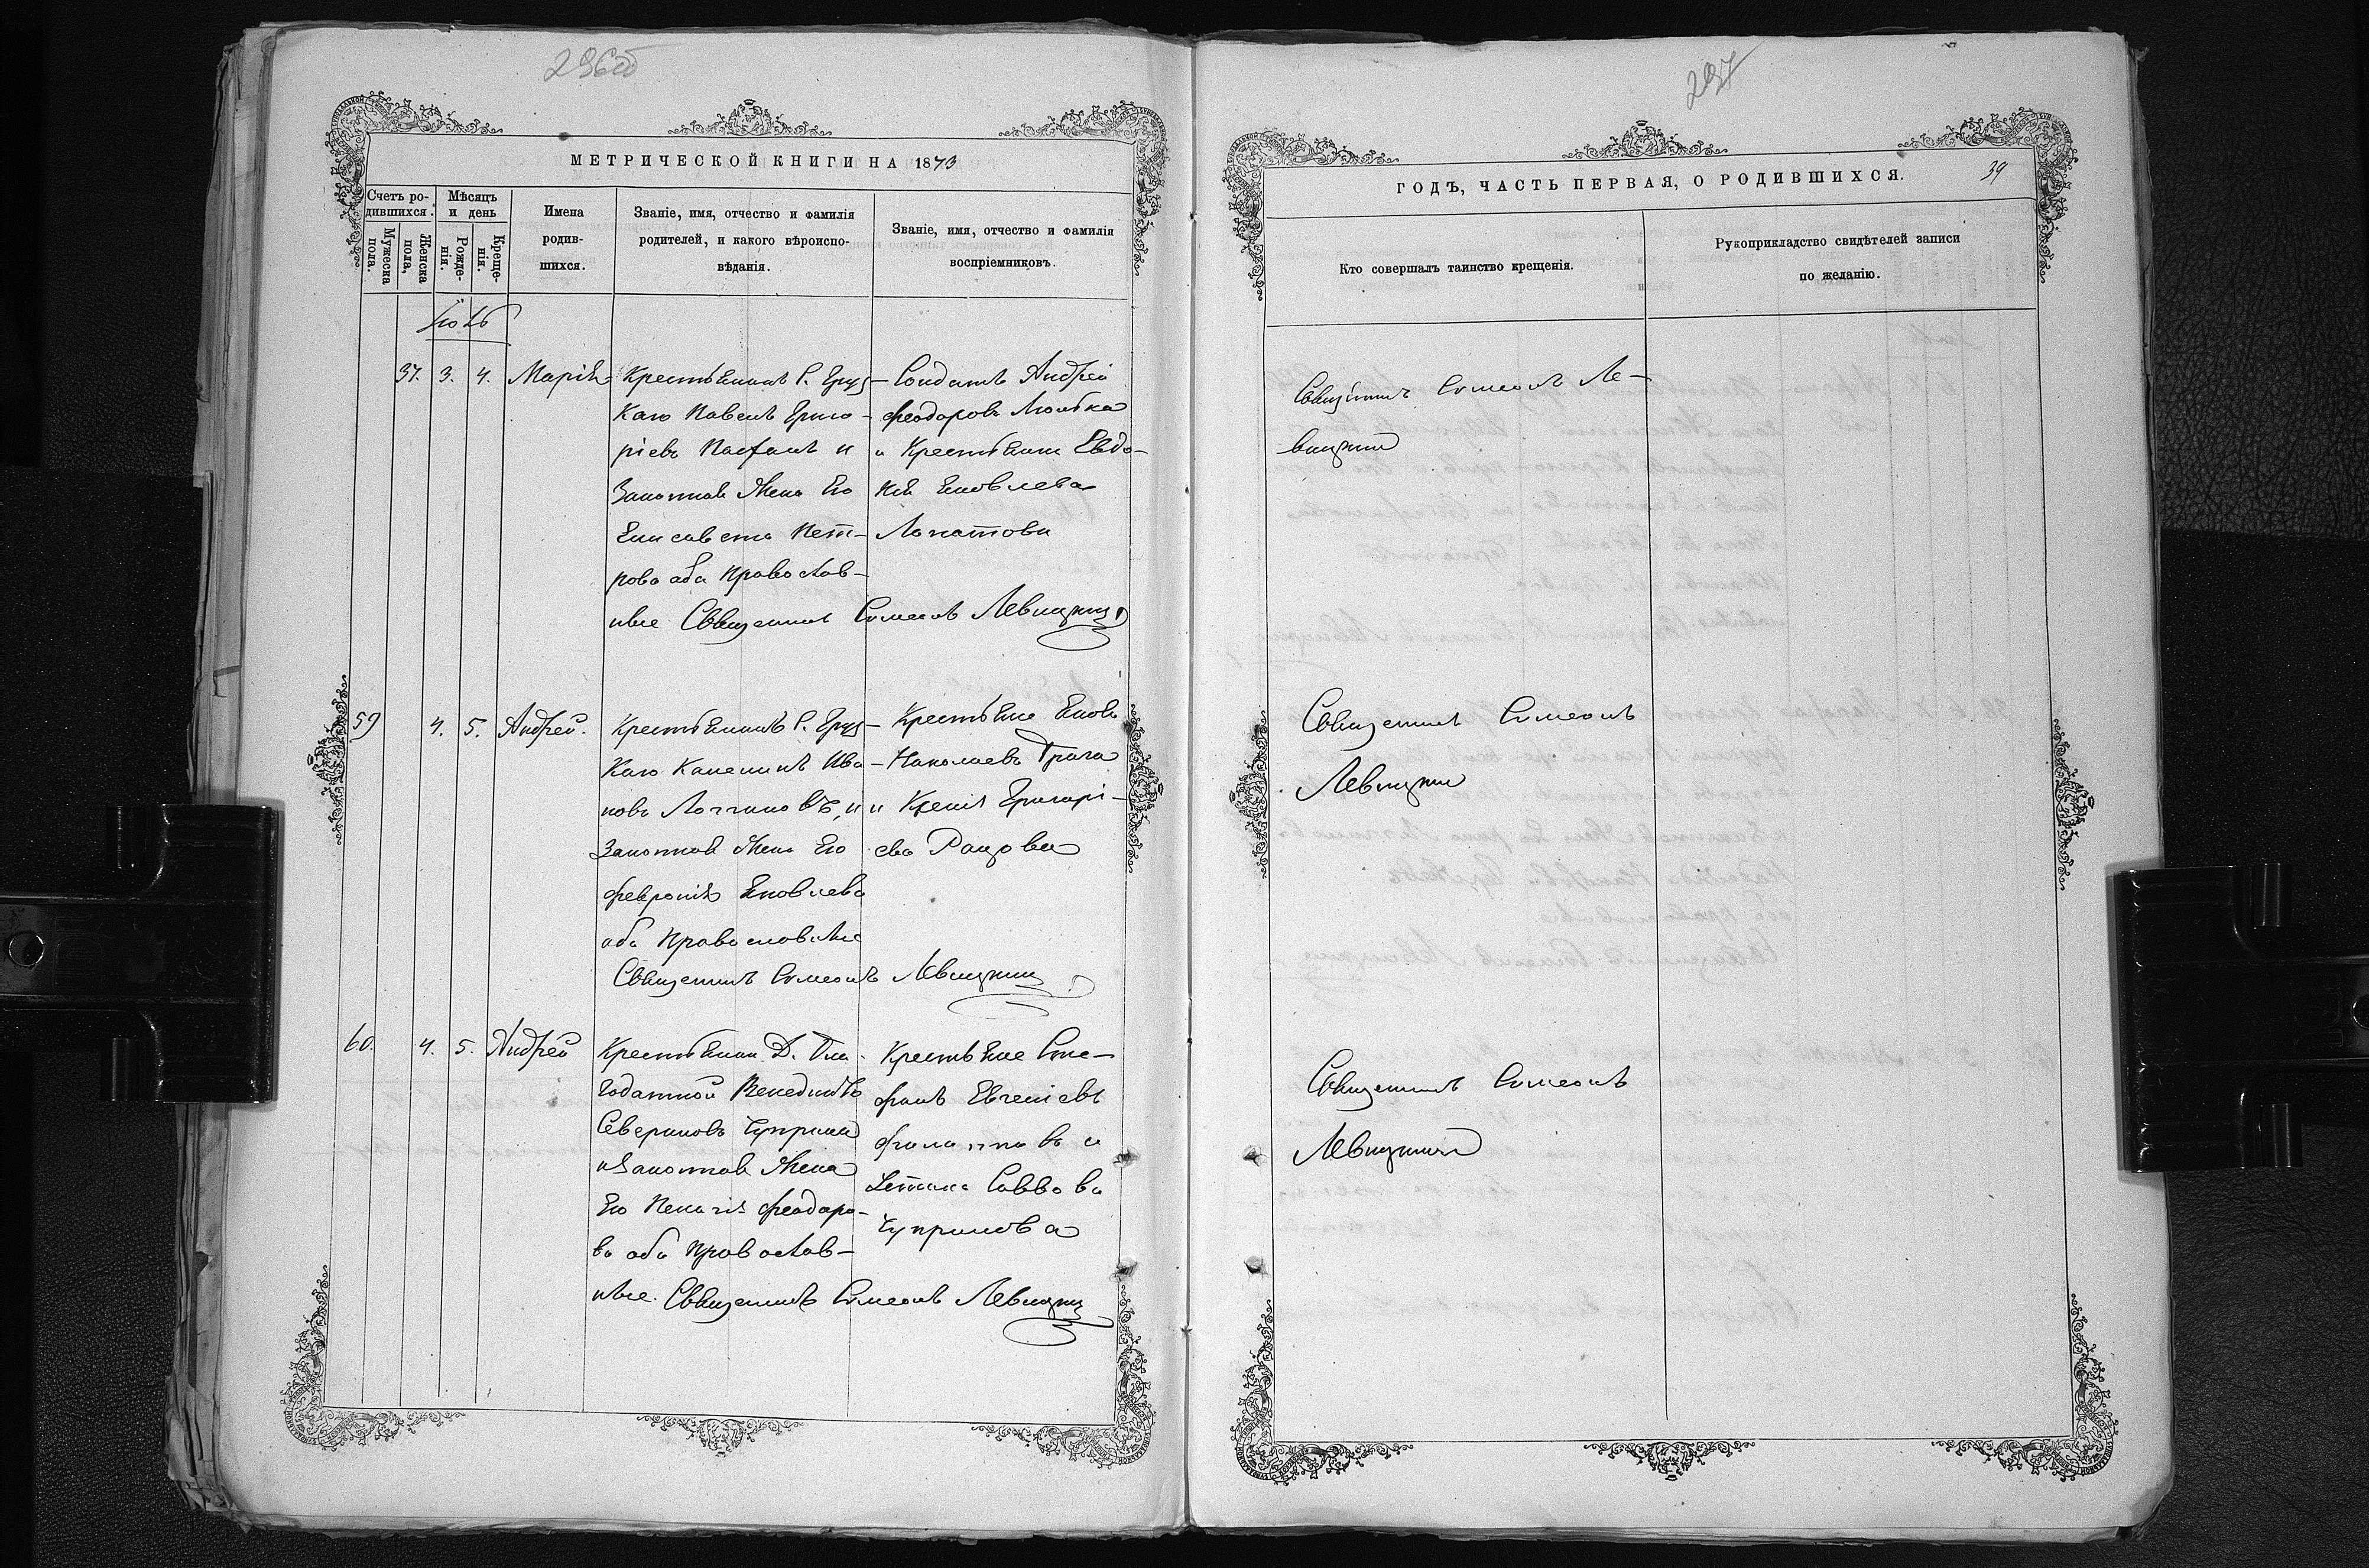 296об
МЕТРИЧЕСКОЙ КНИГИ НА 1873
Счетъ ро-
дившихся.
Мужеска
пола.
Женска
пола.
Мѣсяцъ
и день
Рожде-
нія.
Креще-
нія.
Имена
родив-
шихся.
Званіе, имя, отчество и фамилія
родителей, и какого вѣроиспо-
вѣданія.
Званіе, имя, отчество и фамилія
воспріемниковъ.
37. 3. 4. Марія
Крестьянинъ С. Груз-
каго Павелъ Григо-
ріевъ и
Законная Жена Его
Елисавета Пет-
рова оба православ-
ные Священникъ Симеонъ Левицкій
Солдатъ Андрей
Феодоровъ
и Крестьянка Евдо-
кія Яковлева
Лопатова
59 4. 5. Андрей.
Крестьянинъ С. Груз-
каго Ива-
новъ Логгиновъ, и
Законная Жена Его
Февронія Яковлева
оба Православные
Священникъ Симеонъ Левицкій
Крестьяне Яковъ
Николаевъ Грача
и Ксенія Григорі-
ева
60. 4. 5. Андрей
Крестьянинъ Д. Бла-
годатной Венедиктъ
Севериновъ Чуприна
и Законная Жена
Его Пелагія Феодоро-
ва оба Православ-
ные. Священникъ Симеонъ Левицкій
Крестьяне Сте-
фанъ Евгеніевъ
Филипповъ и
Саввова
Чупринова
297
ГОДЪ, ЧАСТЬ ПЕРВАЯ, О РОДИВШИХСЯ. 39
Кто совершалъ таинство крещенія.
Рукоприкладство свидѣтелей записи
по желанію.
Священникъ Симеонъ Ле-
вицкій
Священникъ Симеонъ
Левицкій
Священникъ Симеонъ
Левицкій